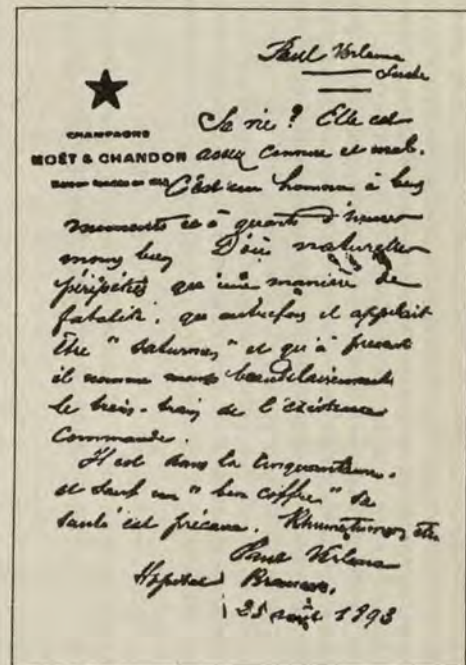 Paul Verlaine
CHAMPAGNE
MOËT & CHANDON
Sa vie ? Elle est
assez connue et mal.
C'est un homme à bons
moments et à quarts d'heure
moins bons D'où naturelles
péripéties qu'une manière de
fatalité, que autrefois il appelait
être "saturnien" et qu'à présent
il nomme moins baudelairement
le train-train de l'existence
commande.
Il est dans la cinquantaine.
et sauf un "bon coffre" sa
santé est précaire. Rhumatismes etc
Paul Verlaine
Hôpital Broussais.
25 août 1893